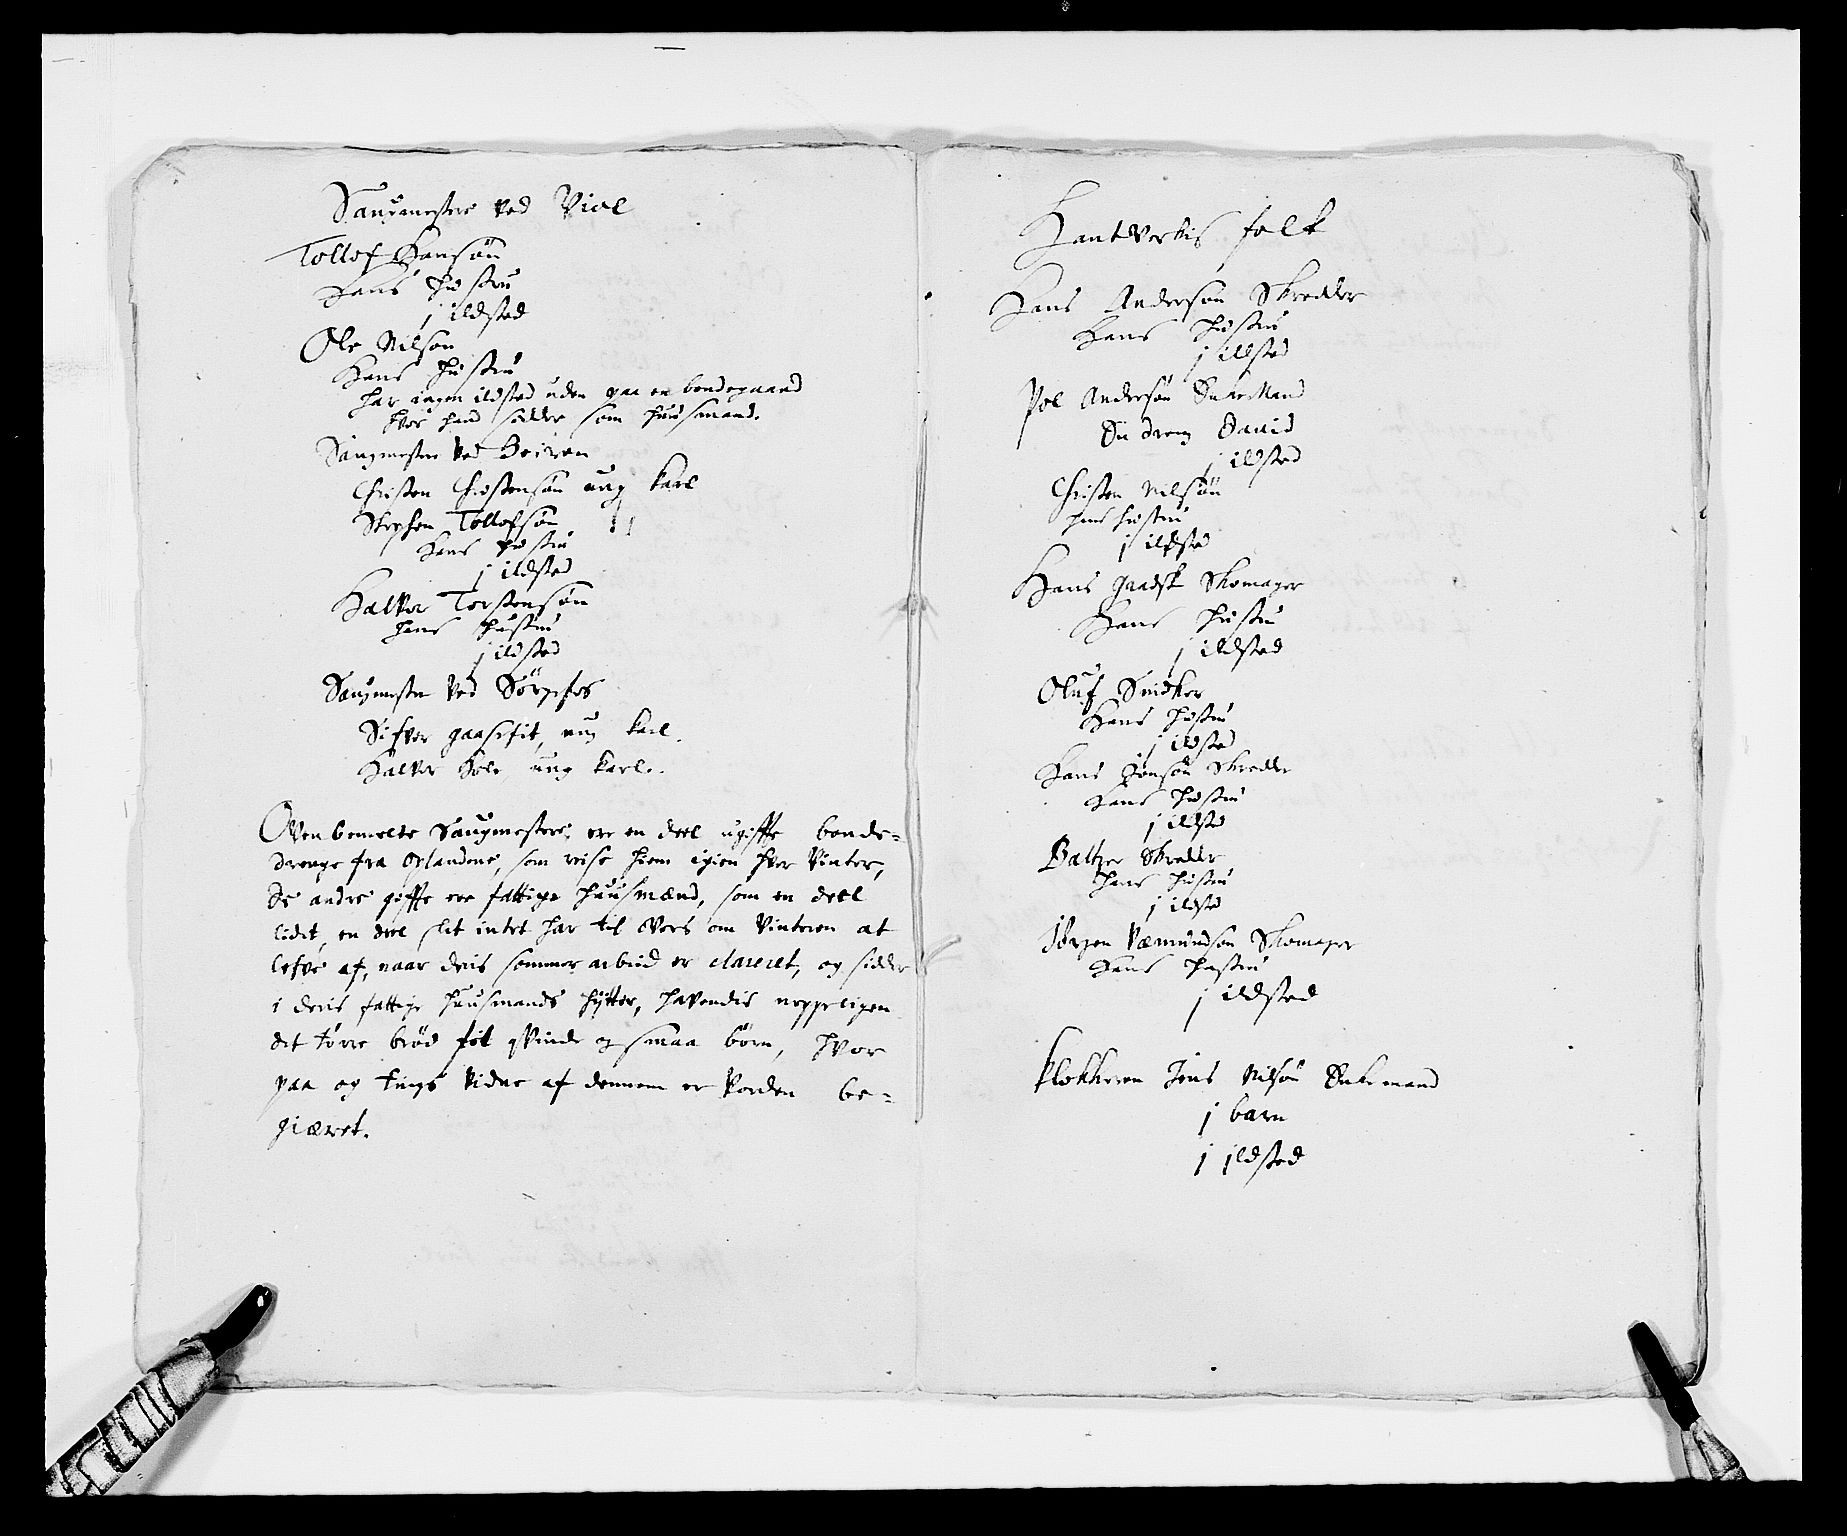 Saugmestere ved Viol
Tollof Hansøn
Hans Hustru
j ildsted
Ole Nilsøn
Hans Hustru
har ingen ildsted uden paa en bondegaard
hvor hand sidder som huusmand.
Saugmester ved
Christen Christensøn ung karl
Stephen Tollofsøn
Hans Hustru
j ildsted
Halvor Torstensøn
Hans Hustru
j ildsted
Saugmester ved Sörgefos
Sifver gaasefit, ung karl.
Halvor Hole, ung karl.
Ovenbemelte Saugmestere, ere en deel ugiffte bonde-
drenge fra Oplandene, som reise hiem igien hver Vinter,
De andre giffte ere fattige huusmænd, som en deel
lidet, en deel slet intet har til Overs om Vinteren at
lefve af, naar deris sommer arbeid er clareret, og sidder
i deris fattige huusmands hÿtter, havendis neppeligen
det törre bröd til qvinde og smaa börn, hvor
paa og tings vidne af dennem er vorden be-
giæret.
Hantverkis folk
Hans Andersøn Skredder
Hans Hustru
j ildsted
Pol Andersøn Enkemand
En dreng David
j ildsted
Christen Nilsøn
hans hustru
j ildsted
Hans Gaadsk Skomager
Hans Hustru
j ildsted
Oluf Snidker
Hans Hustru
j ildsted
Hans Jonsøn Skredder
Hans Hustru
j ildsted
Baltzer Skredder
Hans Hustru
j ildsted
Jörgen Væmundsøn Skomager
Hans Hustru
j ildsted
Klokkeren Jens Nilsøn Enkemand
j barn
j jldsted